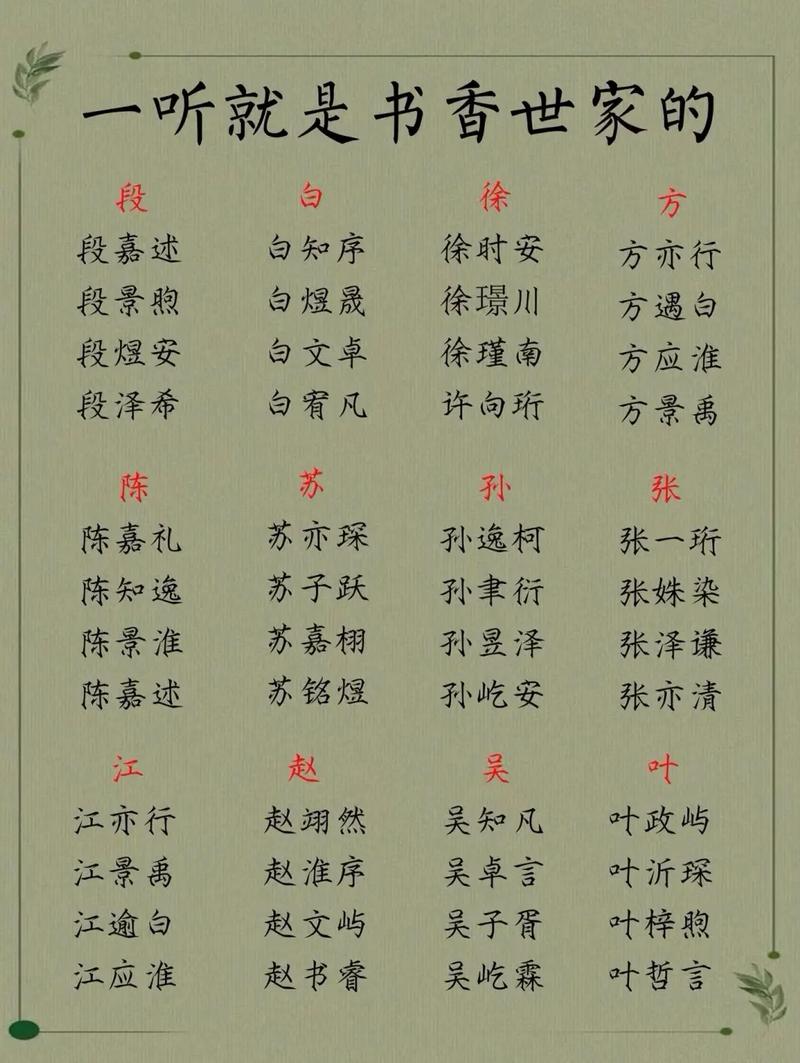 一听就是书香世家的
段 白 徐 方
段嘉述 白知序 徐时安 方亦行
段景煦 白煜晟 徐璟川 方遇白
段煜安 白文卓 徐瑾南 方应淮
段泽希 白宥凡 许向珩 方景禹
陈 苏 孙 张
陈嘉礼 苏亦琛 孙逸柯 张一珩
陈知逸 苏子跃 孙聿衍 张姝染
陈景淮 苏嘉栩 孙昱泽 张泽谦
陈嘉述 苏铭煜 孙屹安 张亦清
江 赵 吴 叶
江亦行 赵翊然 吴知凡 叶政屿
江景禹 赵淮序 吴卓言 叶沂琛
江逾白 赵文屿 吴子胥 叶梓煦
江应淮 赵书睿 吴屹霖 叶哲言